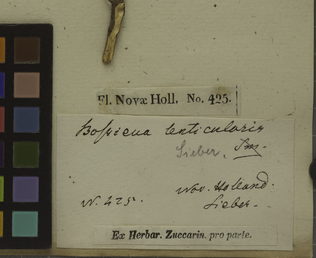 Fl. Novæ Holl. No. 425.
Bossiena lenticularis
Sieber. Sm.
N. 425.
Nov. Holland.
Sieber.
Ex Herbar. Zuccarin. pro parte.